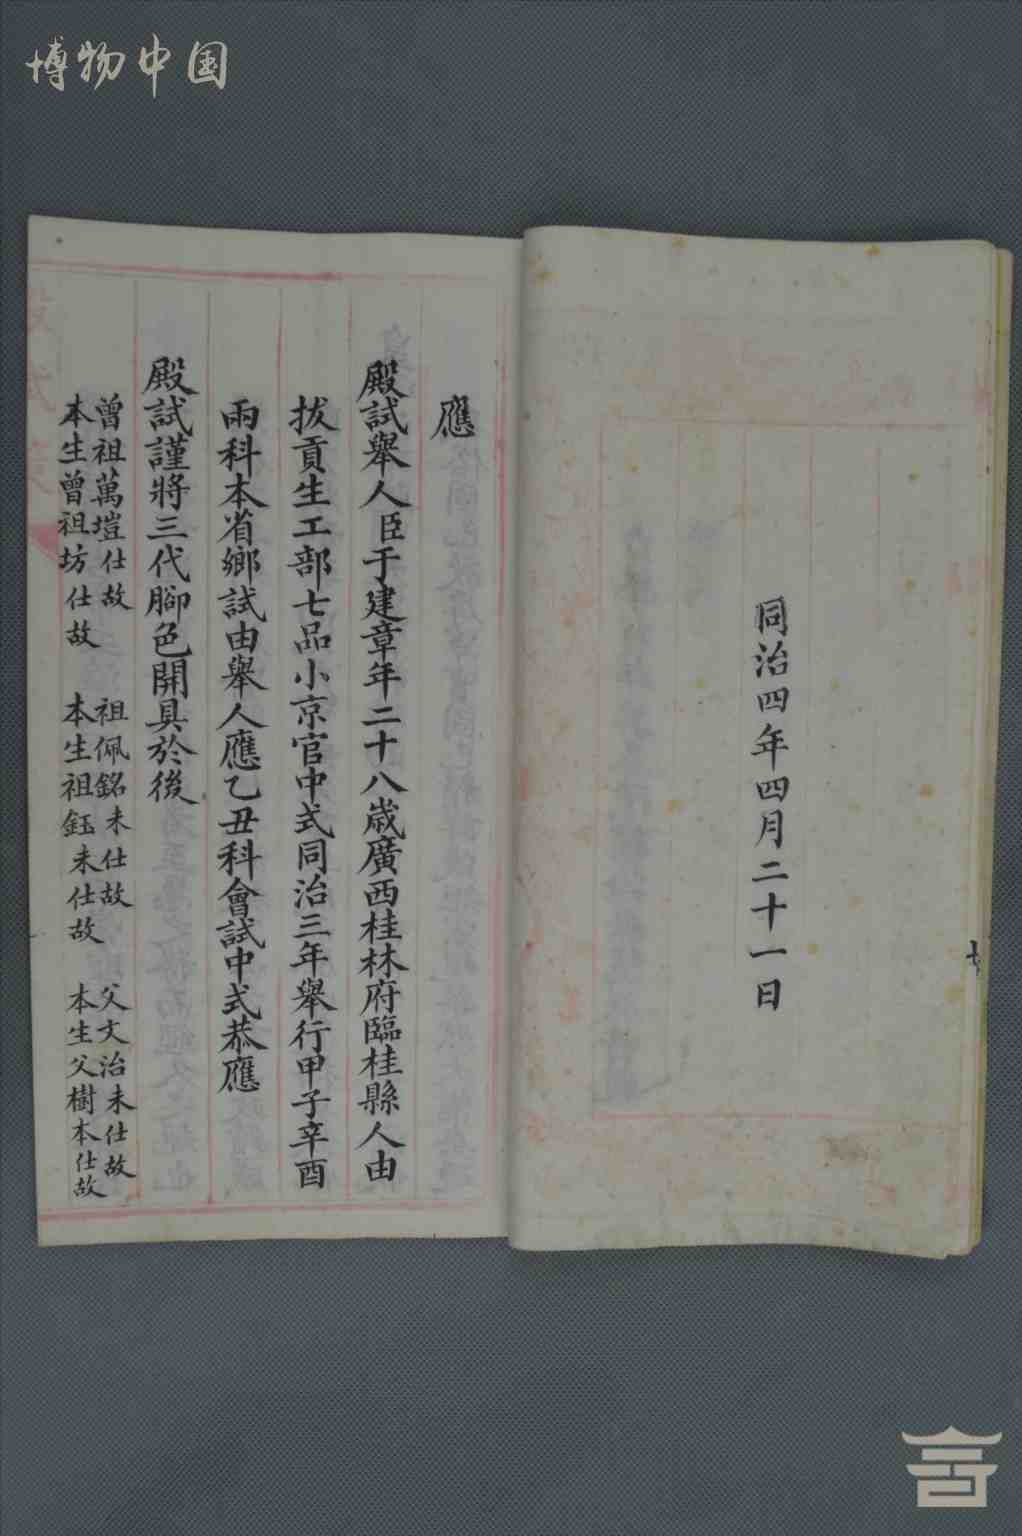 博物中国
同治四年四月二十一日
應
殿試舉人臣于建章年二十八歲廣西桂林府臨桂縣人由
拔貢生工部七品小京官中式同治三年舉行甲子辛酉
兩科本省鄉試由舉人應乙丑科會試中式恭應
殿試謹將三代腳色開具於後
曾祖萬塏仕故 祖佩銘未仕故 父文治未仕故
本生曾祖坊仕故 本生祖鈺未仕故 本生父樹本仕故